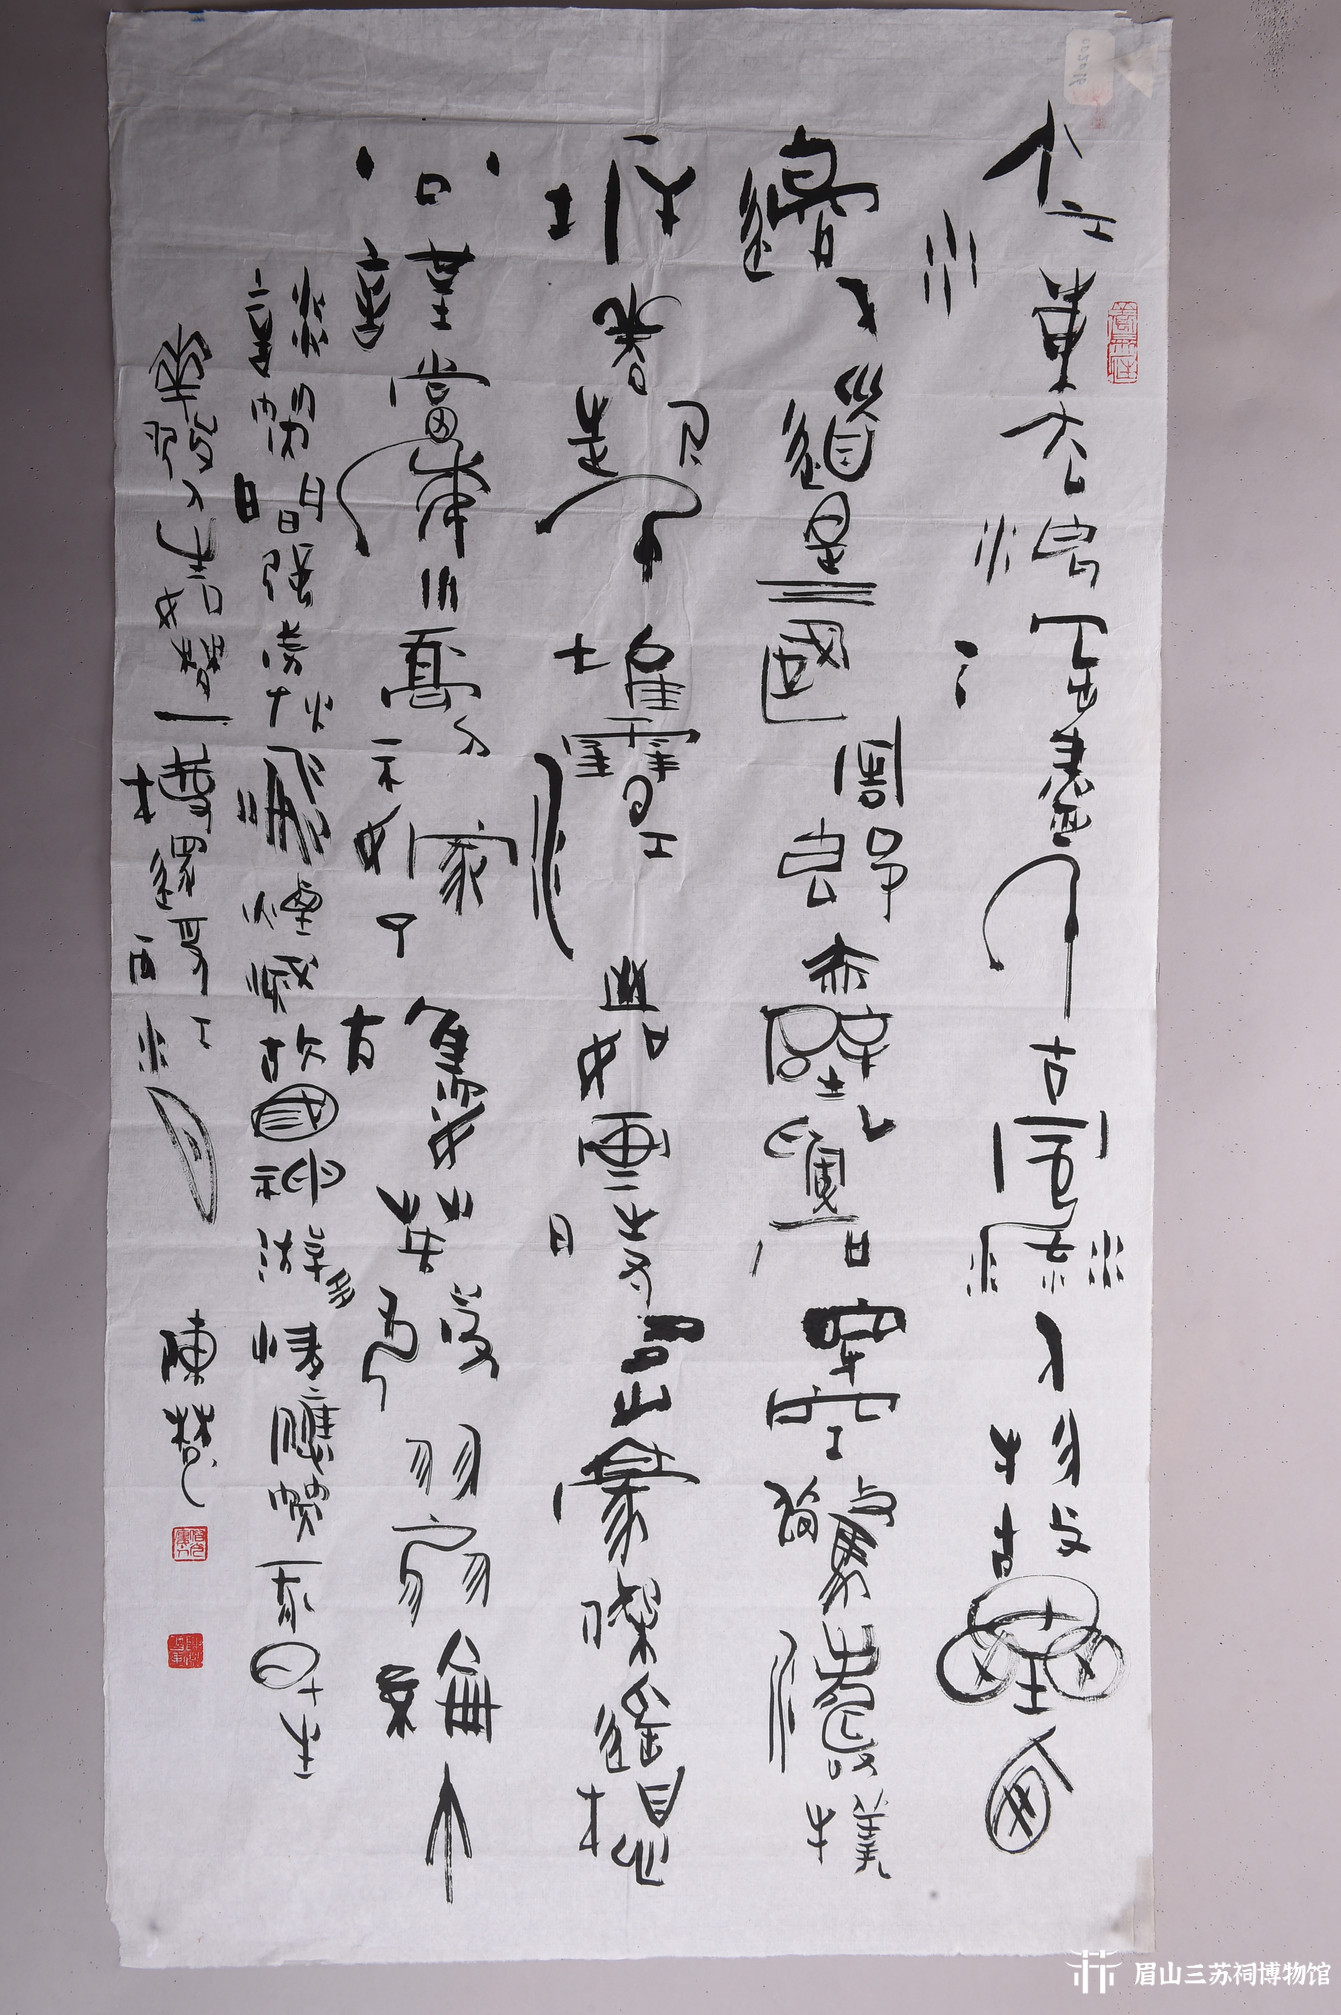 大江東去浪淘盡千古風流人物故壘西
邊人道是三國周郎赤壁亂石穿空驚濤撲
岸卷起千堆雪江山如畫一時多少豪傑遙想
公瑾當年小喬初嫁了雄姿英發羽扇綸巾
談笑間強虜灰飛煙滅故國神游多情應笑我早生
華髮人生如夢一樽還酹江月 陳
眉山三苏祠博物馆